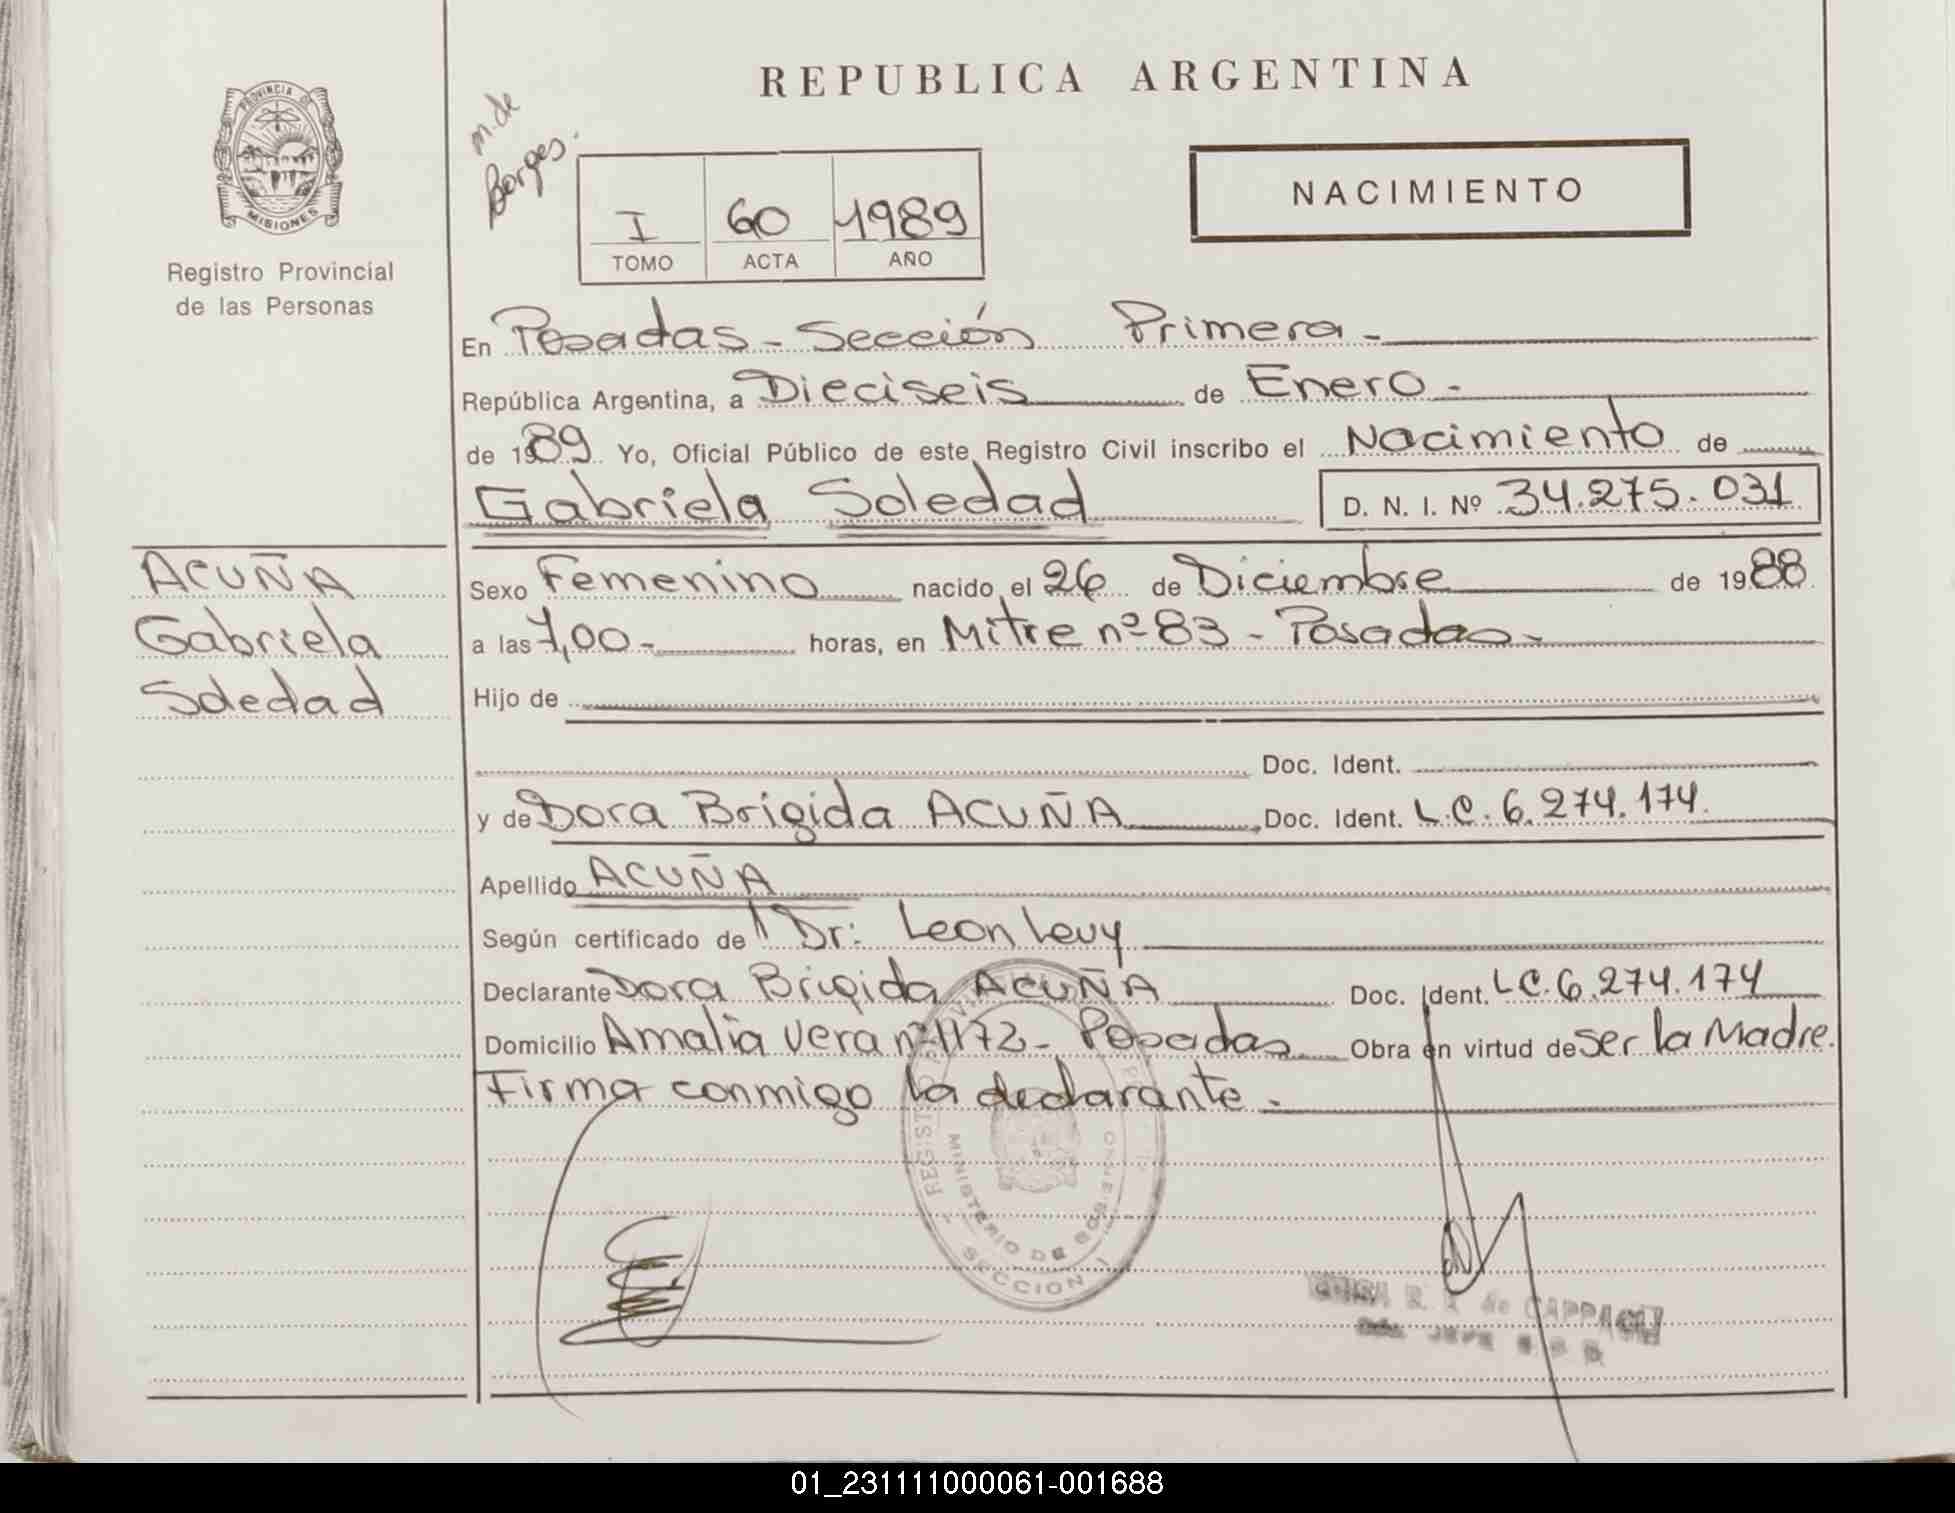 REPUBLICA ARGENTINA
PROVINCIA DE
MISIONES
Registro Provincial
de las Personas
m. de
Borges.
I 60 1989
TOMO ACTA AÑO
NACIMIENTO
En Posadas - Sección Primera -
República Argentina, a Dieciseis de Enero -
de 1989 Yo, Oficial Público de este Registro Civil inscribo el Nacimiento de
Gabriela Soledad D. N. I. Nº 34.275.031
ACUÑA
Gabriela
Soledad
Sexo Femenino nacido el 26 de Diciembre de 1988
a las 7,00 - horas, en Mitre nº 83 - Posadas -
Hijo de
Doc. Ident.
y de Dora Brigida ACUÑA Doc. Ident. L.C. 6.274.174.
Apellido ACUÑA
Según certificado de Dr: Leon Levy
Declarante Dora Brigida ACUÑA Doc. Ident. L.C. 6.274.174
Domicilio Amalia Vera nº 1172 - Posadas Obra en virtud de ser la Madre.
Firma conmigo la declarante -
MINISTERIO DE GOBIERNO
SECCION 1
de CAPPA
JEFE
01_231111000061-001688